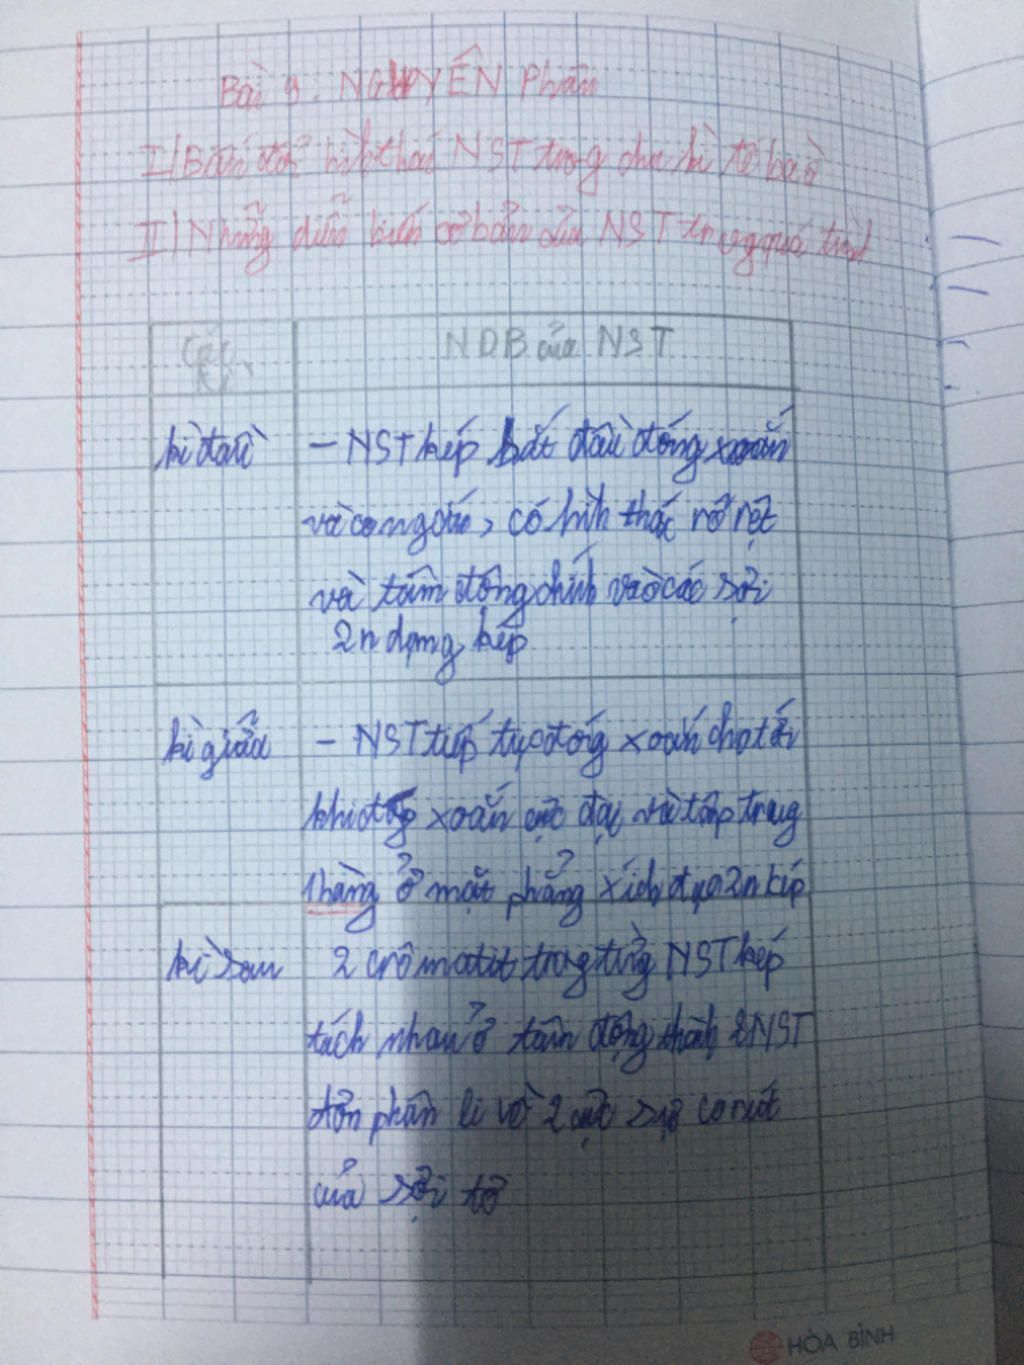 Bài 9. NGUYÊN Phân
I/ Biến đổi hình thái NST trong chu kì tế bào
II/ Những diễn biến cơ bản của NST trong quá trình
Các kì
NDB của NST
kì đầu
- NST kép bắt đầu đóng xoắn
và co ngắn, có hình thái rõ rệt
và tâm động đính vào các sợi
2n dạng kép
kì giữa
- NST tiếp tục đóng xoắn cho tới
khi đóng xoắn cực đại và tập trung
1 hàng ở mặt phẳng xích đạo 2n kép
kì sau
2 crômatit trong từng NST kép
tách nhau ở tâm động thành 2 NST
đơn phân li về 2 cực co rút
của sợi tơ
HÒA BÌNH